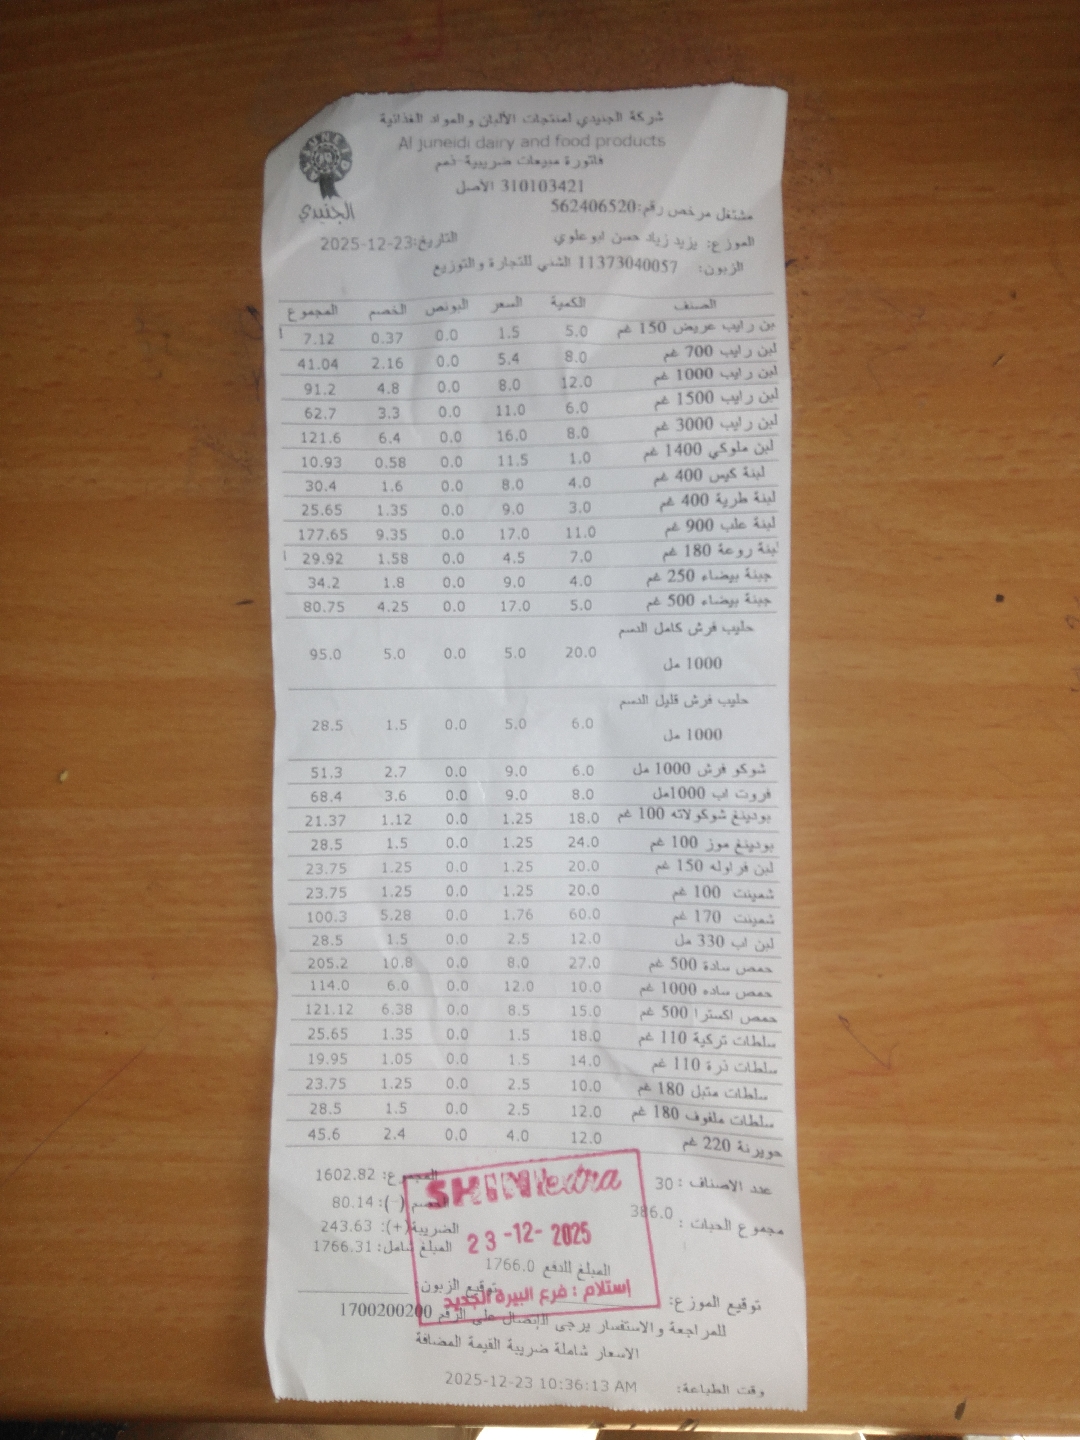 شركة الجنيدي لمنتجات الألبان والمواد الغذائية
Al juneidi dairy and food products
فاتورة مبيعات ضريبية-ذمم
310103421 الأصل
الجنيدي
مشتغل مرخص رقم:562406520
الموزع: يزيد زياد حسن ابوعلوي التاريخ:2025-12-23
الزبون: 11373040057 الشني للتجارة والتوزيع
الصنف الكمية السعر البونص الخصم المجموع
بن رايب عريض 150 غم 5.0 1.5 0.0 0.37 7.12
لبن رايب 700 غم 8.0 5.4 0.0 2.16 41.04
لبن رايب 1000 غم 12.0 8.0 0.0 4.8 91.2
لبن رايب 1500 غم 6.0 11.0 0.0 3.3 62.7
لبن رايب 3000 غم 8.0 16.0 0.0 6.4 121.6
لبن ملوكي 1400 غم 1.0 11.5 0.0 0.58 10.93
لبنة كيس 400 غم 4.0 8.0 0.0 1.6 30.4
لبنة طرية 400 غم 3.0 9.0 0.0 1.35 25.65
لبنة علب 900 غم 11.0 17.0 0.0 9.35 177.65
لبنة روعة 180 غم 7.0 4.5 0.0 1.58 29.92
جبنة بيضاء 250 غم 4.0 9.0 0.0 1.8 34.2
جبنة بيضاء 500 غم 5.0 17.0 0.0 4.25 80.75
حليب فرش كامل الدسم
1000 مل 20.0 5.0 0.0 5.0 95.0
حليب فرش قليل الدسم
1000 مل 6.0 5.0 0.0 1.5 28.5
شوكو فرش 1000 مل 6.0 9.0 0.0 2.7 51.3
فروت اب 1000مل 8.0 9.0 0.0 3.6 68.4
بودينغ شوكولاته 100 غم 18.0 1.25 0.0 1.12 21.37
بودينغ موز 100 غم 24.0 1.25 0.0 1.5 28.5
لبن فراوله 150 غم 20.0 1.25 0.0 1.25 23.75
شمينت 100 غم 20.0 1.25 0.0 1.25 23.75
شمينت 170 غم 60.0 1.76 0.0 5.28 100.3
لبن اب 330 مل 12.0 2.5 0.0 1.5 28.5
حمص سادة 500 غم 27.0 8.0 0.0 10.8 205.2
حمص ساده 1000 غم 10.0 12.0 0.0 6.0 114.0
حمص اكسترا 500 غم 15.0 8.5 0.0 6.38 121.12
سلطات تركية 110 غم 18.0 1.5 0.0 1.35 25.65
سلطات ذرة 110 غم 14.0 1.5 0.0 1.05 19.95
سلطات متبل 180 غم 10.0 2.5 0.0 1.25 23.75
سلطات ملفوف 180 غم 12.0 2.5 0.0 1.5 28.5
حويرنة 220 غم 12.0 4.0 0.0 2.4 45.6
عدد الاصناف : 30 المجموع: 1602.82
الخصم (-): 80.14
مجموع الحبات : 386.0 الضريبة(+): 243.63
المبلغ شامل: 1766.31
SHINI extra
23-12-2025
المبلغ للدفع 1766.0
استلام : فرع البيرة الجديد
توقيع الموزع: توقيع الزبون:
للمراجعة والاستفسار يرجى الاتصال على الرقم 1700200200
الاسعار شاملة ضريبة القيمة المضافة
وقت الطباعة: 2025-12-23 10:36:13 AM